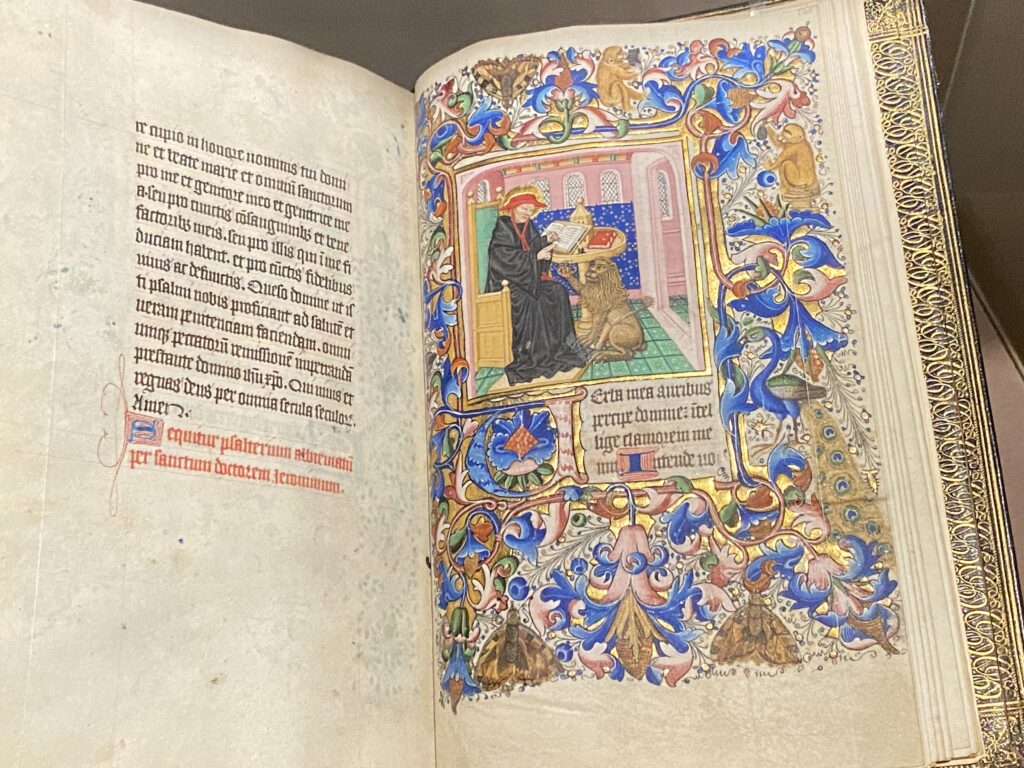 re cupio in honore nominis tui domi
ne et beate marie et omniũ sanctorum
pro me et genitore meo et genitrice me
a. seu pro cunctis cõsanguinibꝫ et bene
factoribꝫ meis. seu pro illis qui ĩ me fi
duciam habent. et pro cũctis fidelibus
uiuis ac defunctis. Queso domine ut is
ti psalmi nobis proficiant ad salutẽ et
ueram penitenciam faciendam. omni
umqꝫ peccatorũ remissionẽ impetrand
prestante domino ihũ xpo. Qui uiuis et
regnas deus per omnia secula seculoꝝ
Amen.
Sequitur psalterium abreuiatũ
per sanctum doctorem jeronimum.
Verba mea auribus
percipe domine: ĩtel
lige clamorem me
um Intende uo